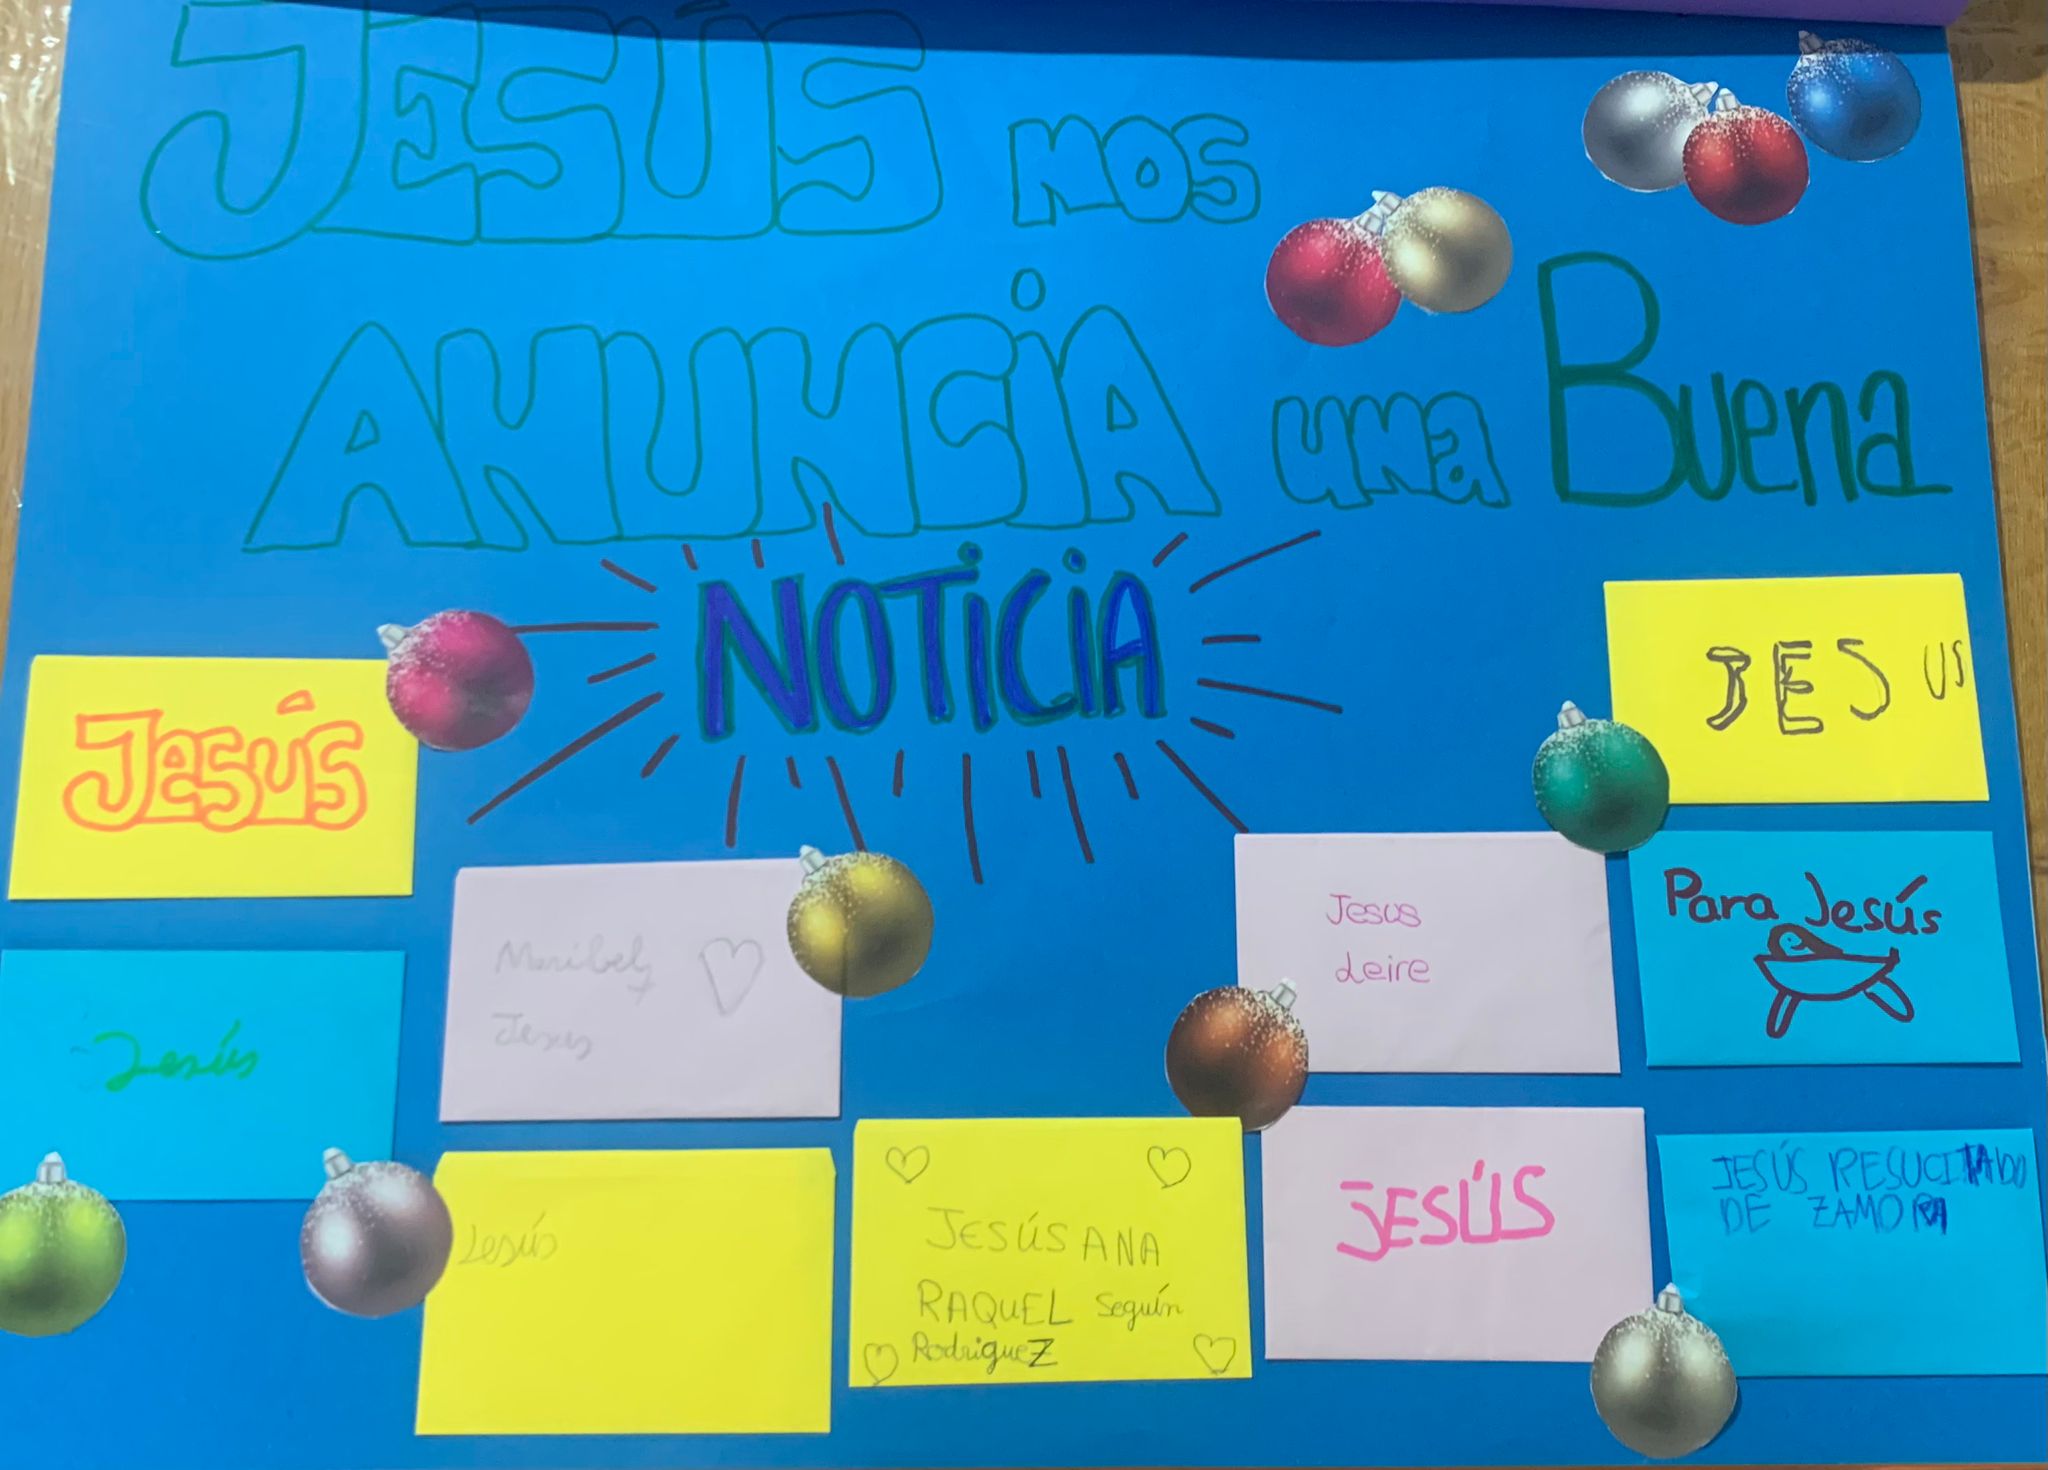 JESÚS NOS
ANUNCIA UNA Buena
NOTICIA
Jesús
JESUS
Maribely
Jesus
Jesus
Leire
Para Jesús
Jesús
Jesús
JESÚS ANA
RAQUEL Seguín
RodrigueZ
JESÚS
JESÚS RESUCITADO
DE ZAMORA